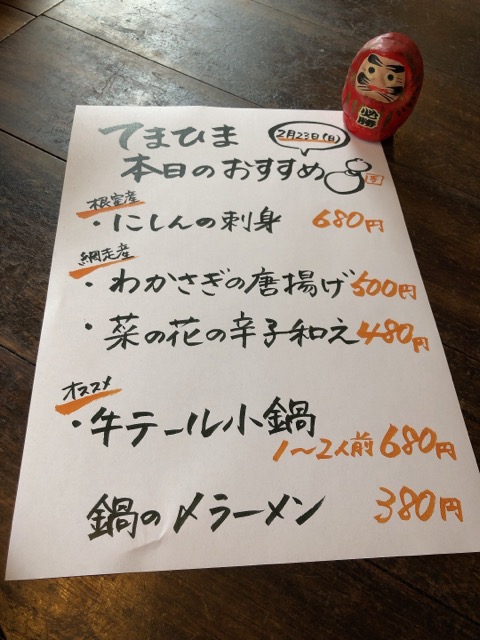 てまひま
2月23日(日)
本日のおすすめ
根室産
・にしんの刺身 680円
網走産
・わかさぎの唐揚げ 500円
・菜の花の辛子和え 480円
オススメ
・牛テール小鍋
1〜2人前 680円
鍋の〆ラーメン 380円
必勝